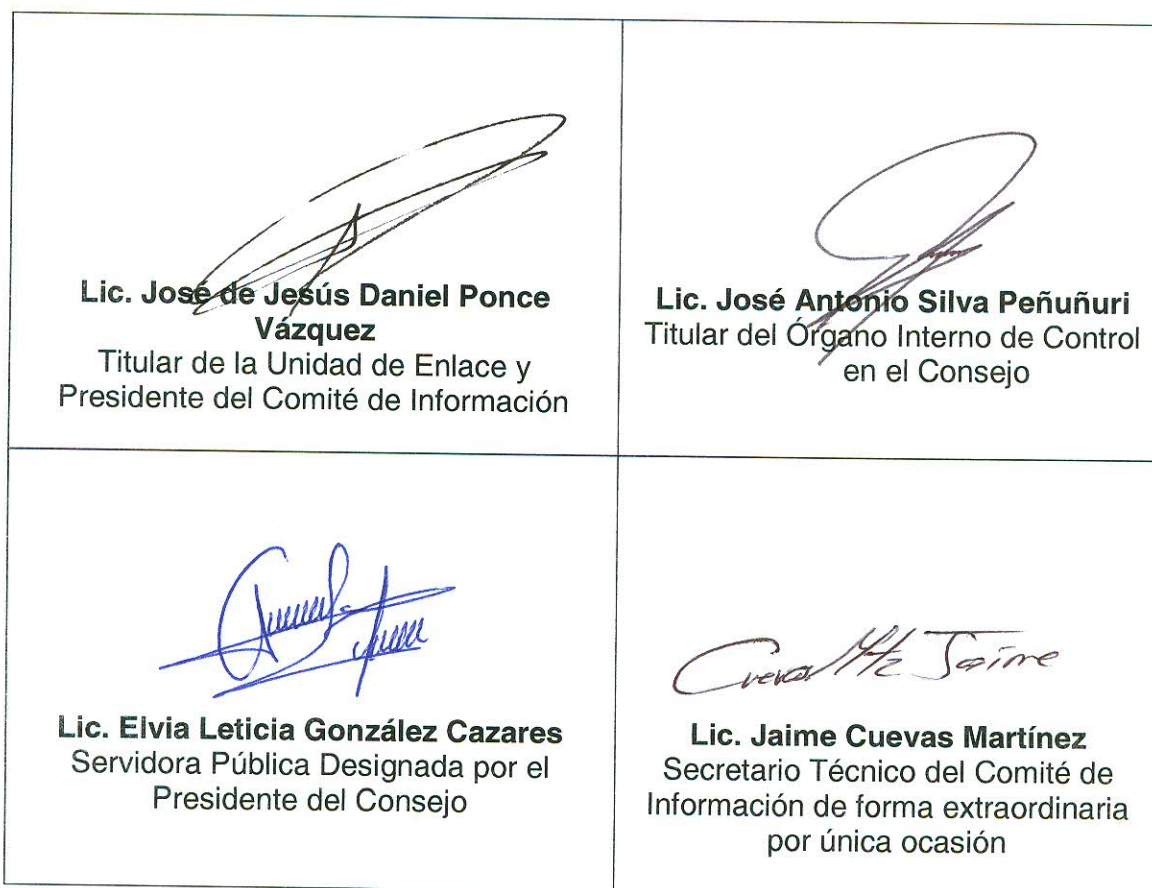 Lic. José de Jesús Daniel Ponce
Vázquez
Titular de la Unidad de Enlace y
Presidente del Comité de Información
Lic. José Antonio Silva Peñuñuri
Titular del Órgano Interno de Control
en el Consejo
Lic. Elvia Leticia González Cazares
Servidora Pública Designada por el
Presidente del Consejo
Cuevas Mtz Jaime
Lic. Jaime Cuevas Martínez
Secretario Técnico del Comité de
Información de forma extraordinaria
por única ocasión